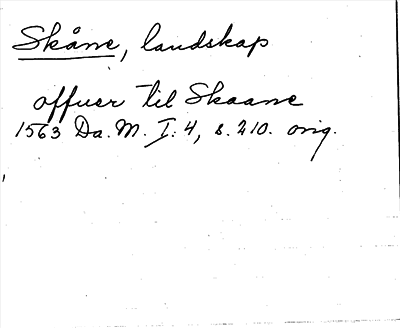 Skåne, landskap
offuer til Skaane
1563 Da. M. I: 4, s. 210. orig.